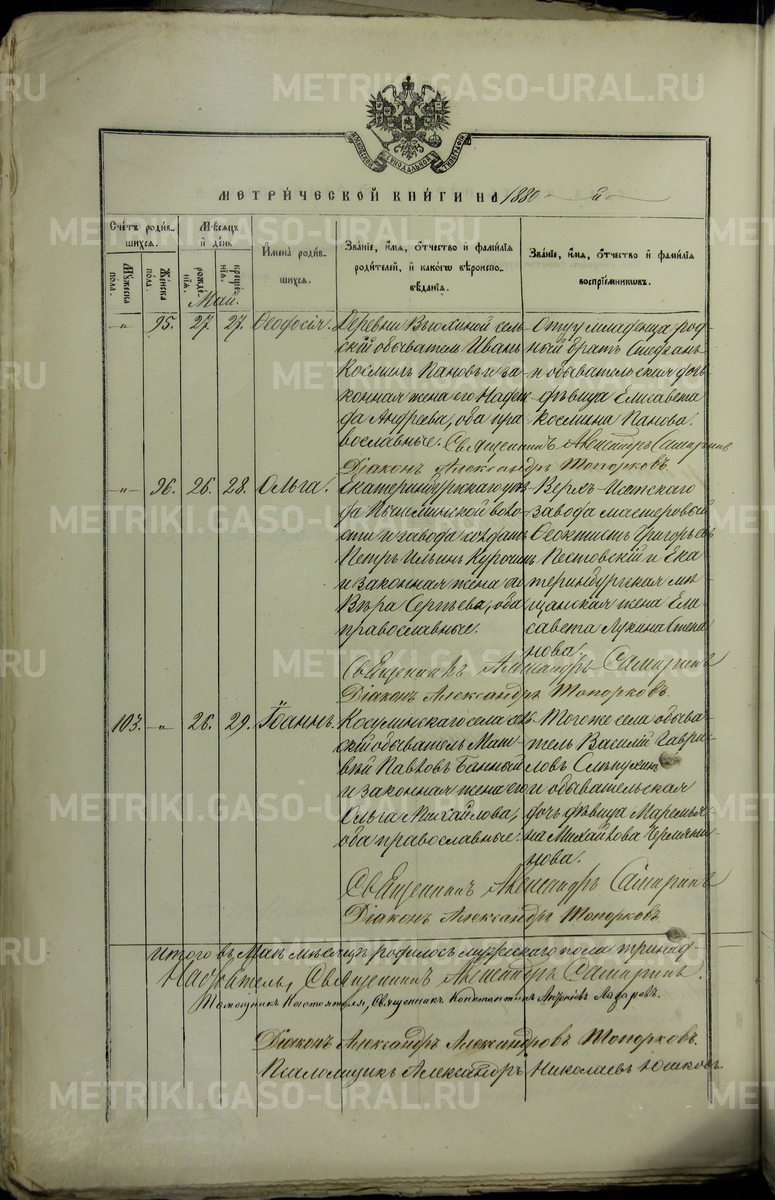 METRIKI.GASO-URAL.RU
МЕТРИ́ЧЕСКОЙ КНИ́ГИ НА 1880 й
Счетъ роди́вшихся.
Мѣсяцъ и день
Имена роди́вшихся.
Зва́нїе, и́мя, о́тчество и фами́лїя родителей, и како́гѡ вѣроисповѣ́данїя.
Зва́нїе, и́мя, о́тчество и фами́лїя воспрїе́мниковъ.
Мужеска пола.
Женска пола.
рожде́нїя.
креще́нїя.
Май.
-"- 95. 27. 27. Ѳеодосія.
Деревни сель-
скій обыватель Иванъ
Косминъ Пановъ и за-
конная жена его Надеж-
да Андреева, оба пра-
вославные.
Отцу младенца род-
ный братъ Стефанъ
и обывательская дочь
дѣвица Елисавета
Космина Панова.
Священникъ Александръ Самаринъ
Діаконъ Александръ Топорковъ.
-"- 96. 26. 28. Ольга.
Екатеринбургскаго уѣз-
да Пышминской воло-
сти и завода солдатъ
Петръ Ильинъ Курочкинъ
и законная жена его
Вѣра Сергѣева, оба
православные.
Верхъ-Исетскаго
завода мастеровый
Ѳеоктистъ Григорьевъ
Пестовскій и Ека-
теринбургская мѣ-
щанская жена Ели-
савета Лукина Степа-
нова.
Священникъ Александръ Самаринъ
Діаконъ Александръ Топорковъ.
103. -"- 26. 29. Іоаннъ.
Косулинскаго села сель-
скій обыватель Мат-
вѣй Павловъ Банный
и законная жена его
Ольга Михайлова,
оба православные.
Тогоже села обыва-
тель Василій Гаври-
ловъ
и обывательская
дочь дѣвица Маремья-
на Михайлова Чермяни-
нова.
Священникъ Александръ Самаринъ
Діаконъ Александръ Топорковъ
Итого въ Маѣ мѣсяцѣ родилось мужескаго пола тринад-
Настоятель, Священникъ Александръ Самаринъ.
Помощникъ Настоятеля, Священникъ Константинъ Лазаревъ.
Діаконъ Александръ Александровъ Топорковъ.
Псаломщикъ Александръ Николаевъ Юшковъ